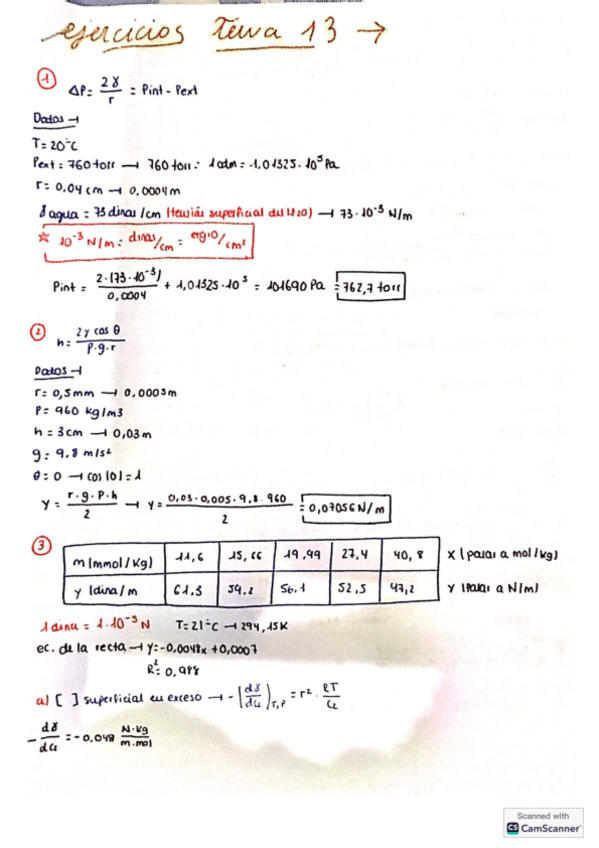 ejercicios Tema 13 →
① ΔP = 2γ/r = Pint - Pext
Datos →
T = 20°C
Pext = 760 torr → 760 torr = 1 atm = 1,01325·10⁵ Pa
r = 0,04 cm → 0,0004 m
γ agua = 73 dinas/cm (tensión superficial del H2O) → 73·10⁻³ N/m
☆ 10⁻³ N/m = dinas/cm = ergio/cm²
Pint = 2·(73·10⁻³)/0,0004 + 1,01325·10⁵ = 101690 Pa = 762,7 torr
② h = 2γ cos θ/ρ·g·r
Datos →
r = 0,5mm → 0,0005m
ρ = 960 kg/m3
h = 3cm → 0,03m
g = 9.8 m/s²
θ = 0 → cos(0) = 1
γ = r·g·ρ·h/2 → γ = 0,03·0,005·9,8·960/2 = 0,07056 N/m
③ m (mmol/kg) 11,6 15,66 19,99 27,4 40,8 x (pasar a mol/kg)
γ (dina/m 61.3 59.2 56.1 52,5 47,2 y (pasar a N/m)
1 dina = 1·10⁻⁵ N T = 21°C → 294,15K
ec. de la recta → y = -0,0048x + 0,0007
R² = 0,988
a) [ ] superficial en exceso → -(dγ/dc)T,P = r²·RT/c
- dγ/dc = -0.048 N·kg/m·mol